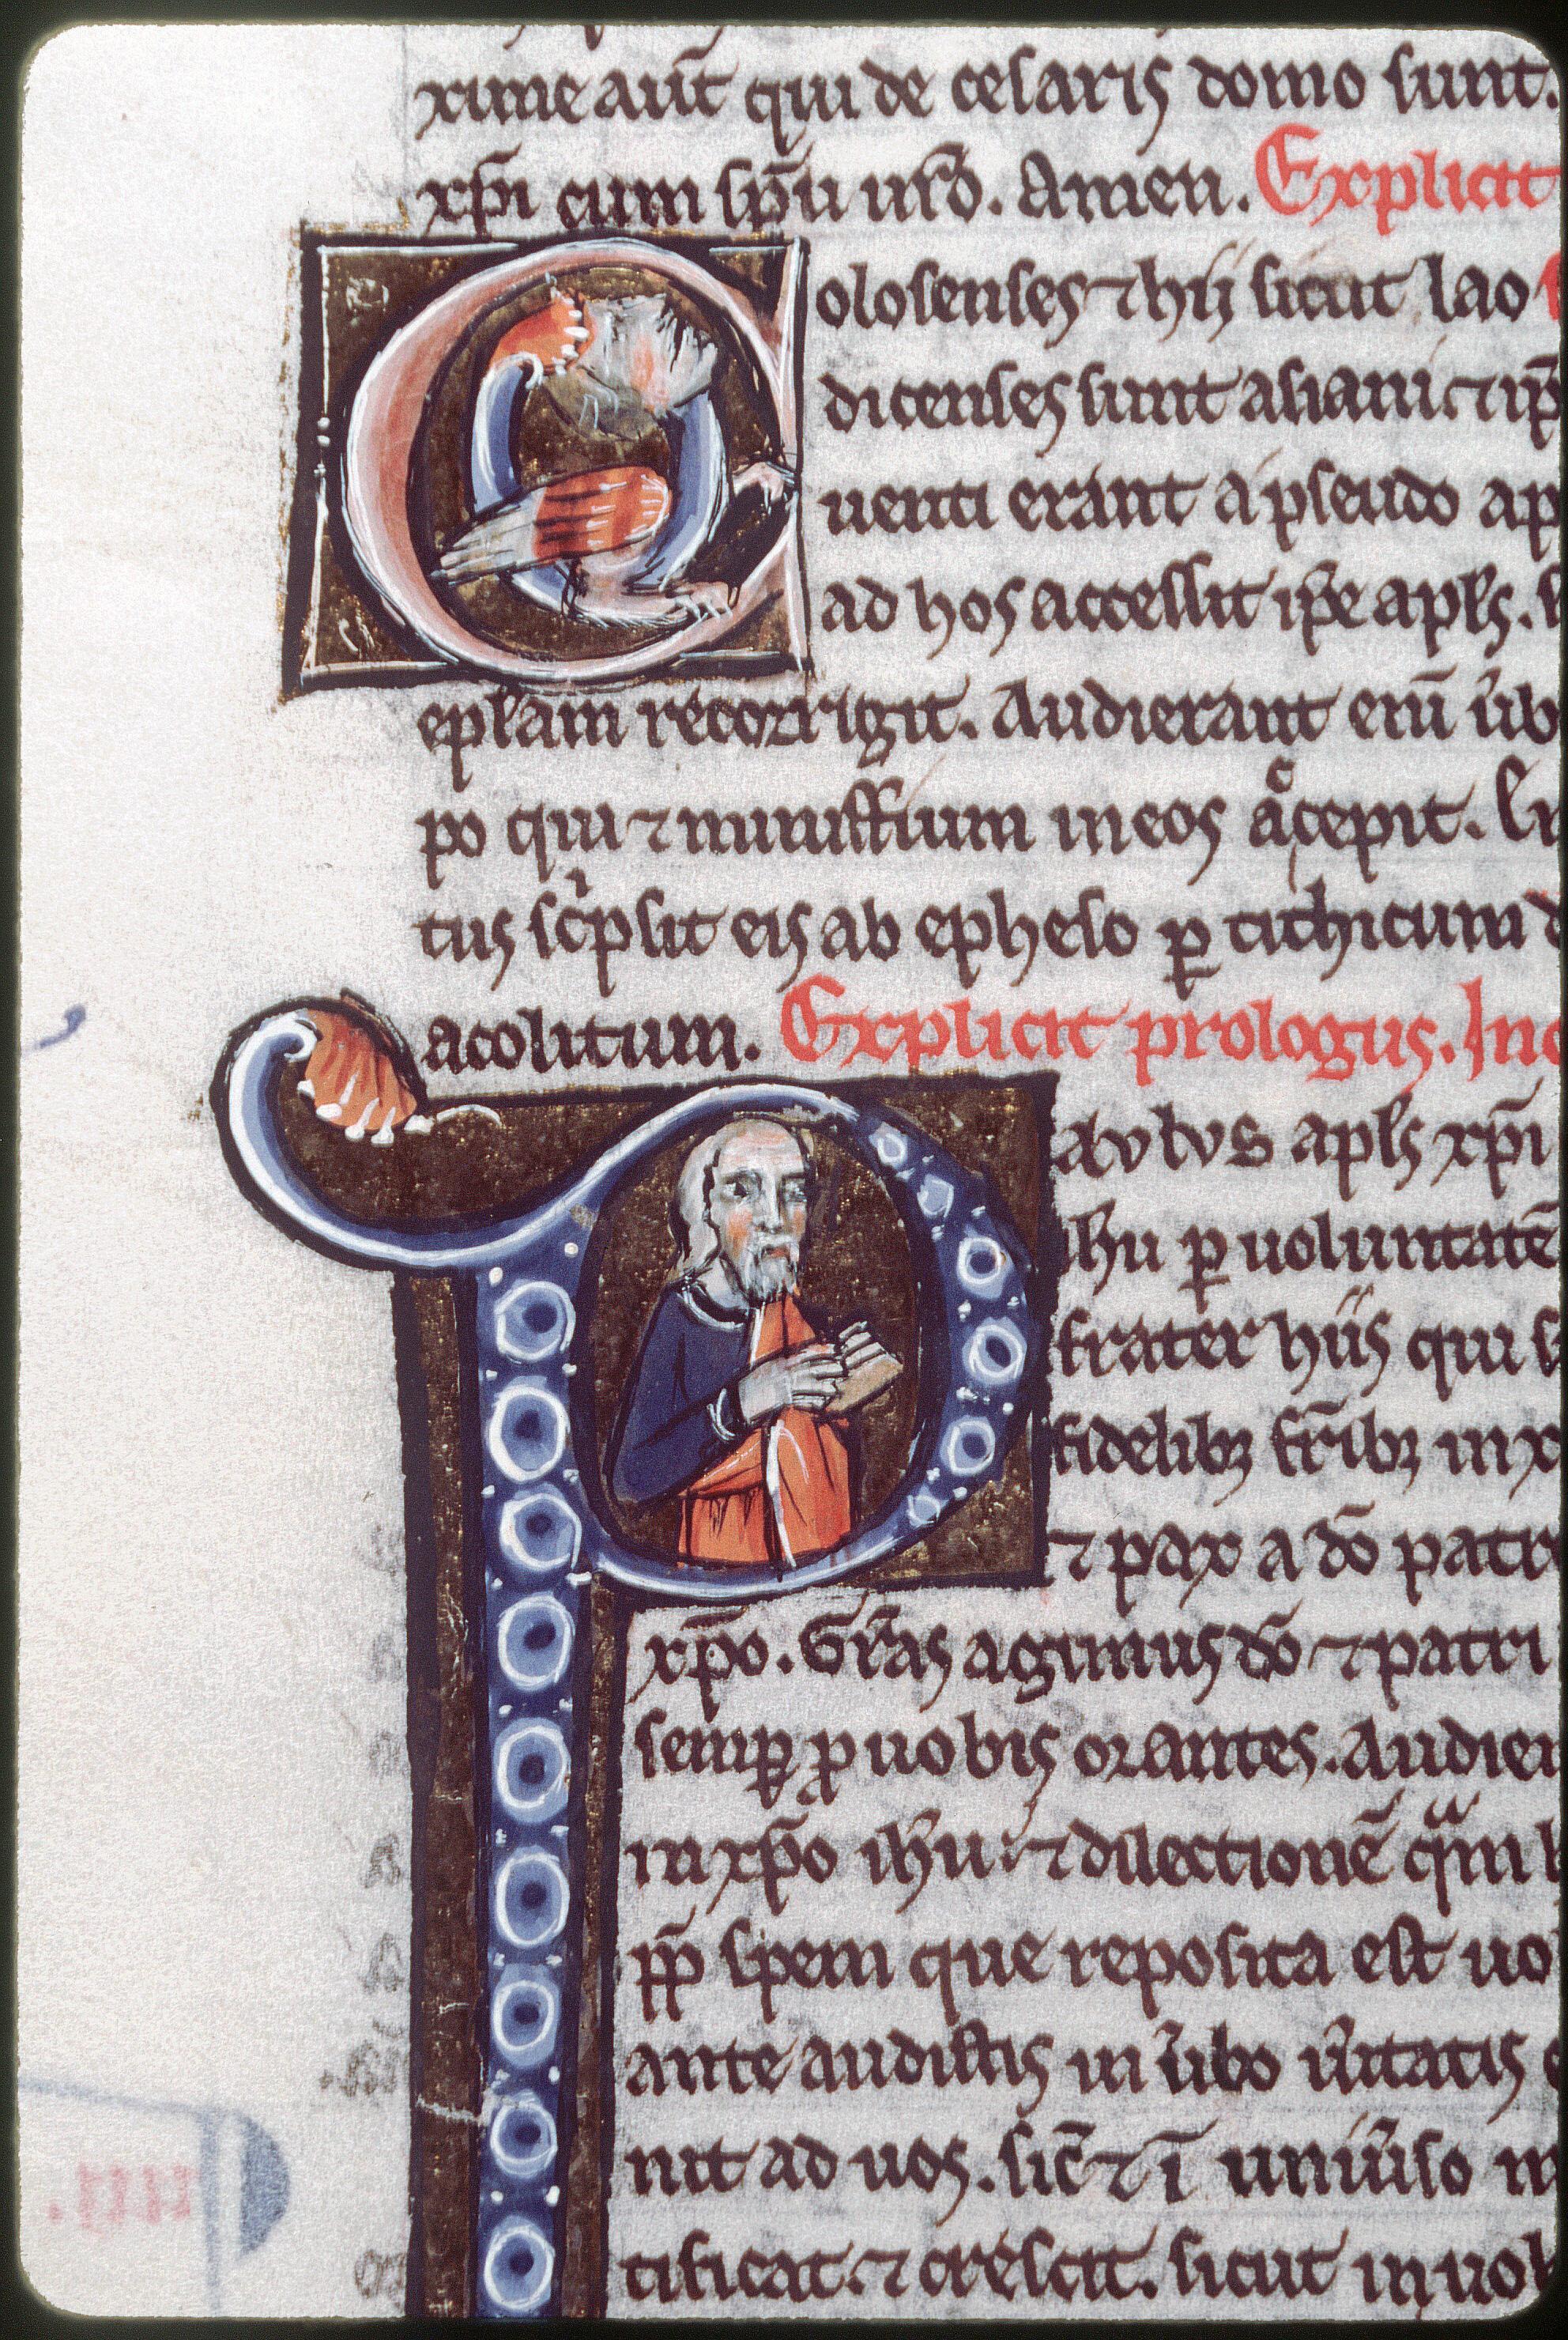 xime aut̄ qui de cesaris domo sunt.
xp̄i cum sp̄u ur̄o. Amen. Explicit
Colosenses ⁊ hij sicut lao
dicenses sunt asiani. ⁊ ip̄
uenti erant a pseudo ap
ad hos accessit ip̄e apl̄s. s
epl̄am recorrigit. Audierant enī u̔b
po qui ⁊ ministerium in eos accepit.
tus sc̄psit eis ab epheso ꝑ tithicum d
acolitum. Explicit prologus. Inc
Paulus apl̄s xp̄i
ih̄u ꝑ uoluntatē
frater hiis qui s
fidelibꝫ fr̄ibꝫ in x
⁊ pax a do̅ patr
xp̄o. Gr̄as agimus do̅ ⁊ patri
semꝑ ꝓ uobis orantes. Audien
in xp̄o ih̄u ⁊ dilectionē quam h
ꝓp̄ spem que reposita est uo
ante audistis in u̔bo u̔itatis e
nit ad uos. sic̄ ⁊ ī uniu̔so m
tificat. ⁊ crescit. sicut in uob